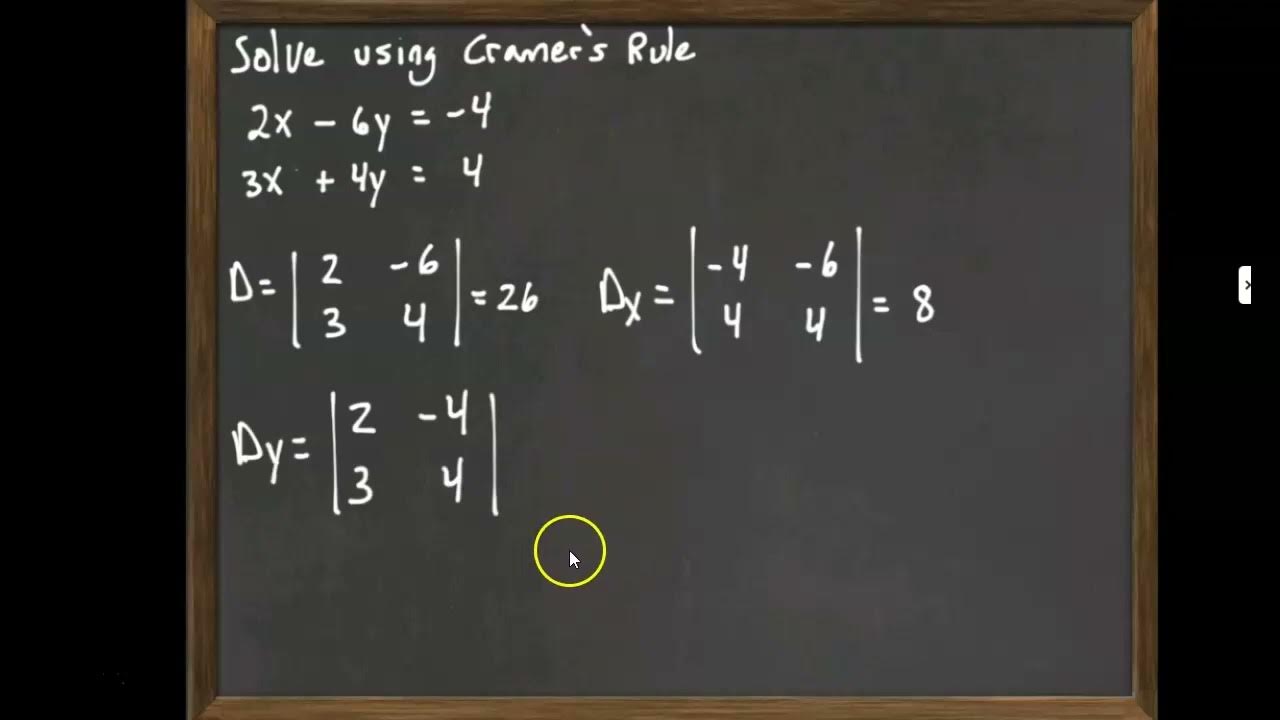 Solve using Cramer's Rule
2x - 6y = -4
3x + 4y = 4
D = | 2 -6 | = 26
| 3 4 |
Dx = | -4 -6 | = 8
| 4 4 |
Dy = | 2 -4 |
| 3 4 |